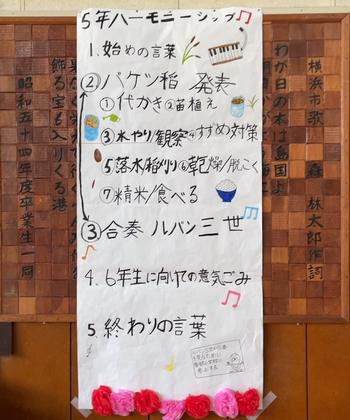 5年ハーモニーシップ
1.始めの言葉
②バケツ稲 発表
①代かき②苗植え
③水やり観察④すずめ対策
⑤落水/稲刈り⑥乾燥/脱こく
⑦精米/食べる
③合奏 ルパン三世
4.6年生に向けての意気ごみ
5 終わりの言葉
横浜市歌 森 林太郎作詞
わが日の本は島国よ
飾る宝も入りくる港
昭和五十四年度卒業生一同